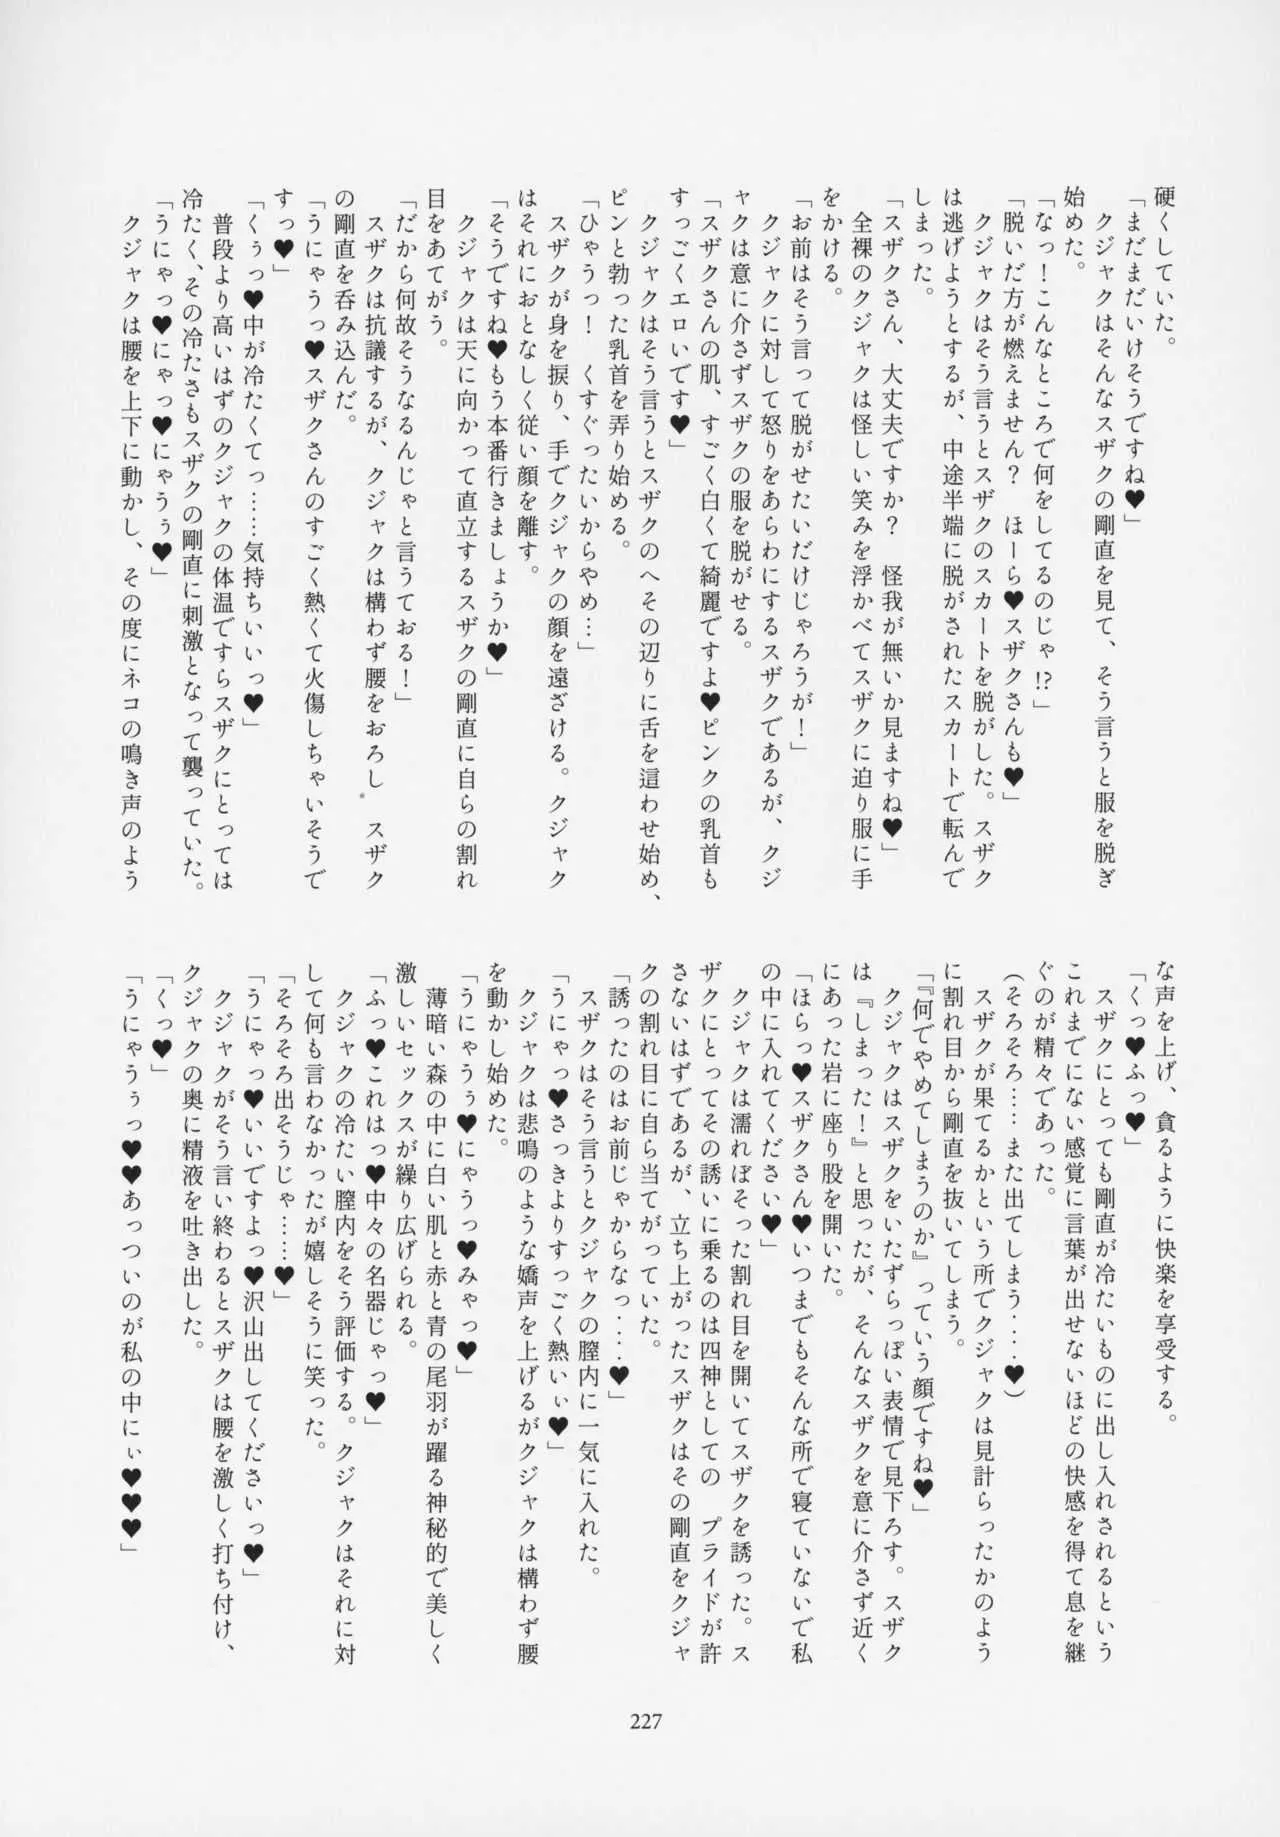 硬くしていた。
「まだまだいけそうですね♥」
クジャクはそんなスザクの剛直を見て、そう言うと服を脱ぎ
始めた。
「なっ！こんなところで何をしてるのじゃ!?」
「脱いだ方が燃えません？　ほーら♥スザクさんも♥」
クジャクはそう言うとスザクのスカートを脱がした。スザク
は逃げようとするが、中途半端に脱がされたスカートで転んで
しまった。
「スザクさん、大丈夫ですか？　怪我が無いか見ますね♥」
全裸のクジャクは怪しい笑みを浮かべてスザクに迫り服に手
をかける。
「お前はそう言って脱がせたいだけじゃろうが！」
クジャクに対して怒りをあらわにするスザクであるが、クジ
ャクは意に介さずスザクの服を脱がせる。
「スザクさんの肌、すごく白くて綺麗ですよ♥ピンクの乳首も
すっごくエロいです♥」
クジャクはそう言うとスザクのへその辺りに舌を這わせ始め、
ピンと勃った乳首を弄り始める。
「ひゃうっ！　くすぐったいからやめ…」
スザクが身を捩り、手でクジャクの顔を遠ざける。クジャク
はそれにおとなしく従い顔を離す。
「そうですね♥もう本番行きましょうか♥」
クジャクは天に向かって直立するスザクの剛直に自らの割れ
目をあてがう。
「だから何故そうなるんじゃと言うておる！」
スザクは抗議するが、クジャクは構わず腰をおろし　スザク
の剛直を呑み込んだ。
「うにゃうっ♥スザクさんのすごく熱くて火傷しちゃいそうで
すっ♥」
「くぅっ♥中が冷たくてっ……気持ちいいっ♥」
普段より高いはずのクジャクの体温ですらスザクにとっては
冷たく、その冷たさもスザクの剛直に刺激となって襲っていた。
「うにゃっ♥にゃっ♥にゃうぅ♥」
クジャクは腰を上下に動かし、その度にネコの鳴き声のよう
な声を上げ、貪るように快楽を享受する。
「くっ♥ふっ♥」
スザクにとっても剛直が冷たいものに出し入れされるという
これまでにない感覚に言葉が出せないほどの快感を得て息を継
ぐのが精々であった。
（そろそろ……また出てしまう‥‥♥）
スザクが果てるかという所でクジャクは見計らったかのよう
に割れ目から剛直を抜いてしまう。
「『何でやめてしまうのか』っていう顔ですね♥」
クジャクはスザクをいたずらっぽい表情で見下ろす。スザク
は『しまった！』と思ったが、そんなスザクを意に介さず近く
にあった岩に座り股を開いた。
「ほらっ♥スザクさん♥いつまでもそんな所で寝ていないで私
の中に入れてください♥」
クジャクは濡れぼそった割れ目を開いてスザクを誘った。ス
ザクにとってその誘いに乗るのは四神としての　プライドが許
さないはずであるが、立ち上がったスザクはその剛直をクジャ
クの割れ目に自ら当てがっていた。
「誘ったのはお前じゃからなっ‥‥♥」
スザクはそう言うとクジャクの膣内に一気に入れた。
「うにゃっ♥さっきよりすっごく熱いぃ♥」
クジャクは悲鳴のような嬌声を上げるがクジャクは構わず腰
を動かし始めた。
「うにゃうぅ♥にゃうっ♥みゃっ♥」
薄暗い森の中に白い肌と赤と青の尾羽が躍る神秘的で美しく
激しいセックスが繰り広げられる。
「ふっ♥これはっ♥中々の名器じゃっ♥」
クジャクの冷たい膣内をそう評価する。クジャクはそれに対
して何も言わなかったが嬉しそうに笑った。
「そろそろ出そうじゃ……♥」
「うにゃっ♥いいですよっ♥沢山出してくださいっ♥」
クジャクがそう言い終わるとスザクは腰を激しく打ち付け、
クジャクの奥に精液を吐き出した。
「くっ♥」
「うにゃうぅっ♥♥あっついのが私の中にぃ♥♥♥」
227